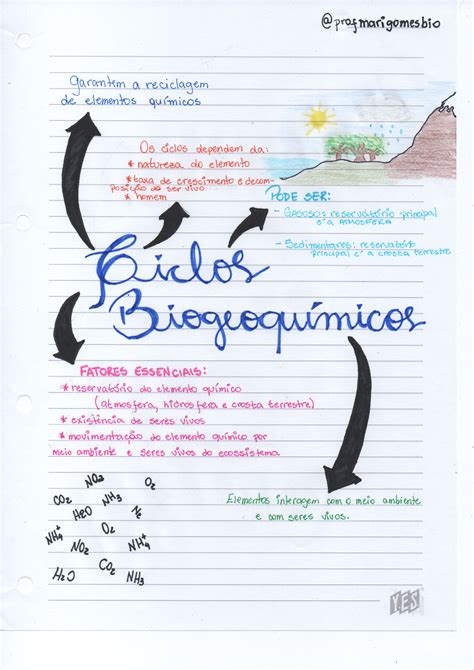 @profmarigomesbio
Garantem a reciclagem
de elementos químicos
Os ciclos dependem da:
* natureza do elemento
* taxa de crescimento e decom-
posição do ser vivo
* homem
PODE SER:
- GASOSO: reservatório principal
é a ATMOSFERA
- Sedimentares: reservatório
principal é a crosta terrestre
Ciclos
Biogeoquímicos
FATORES ESSENCIAIS:
* reservatório do elemento químico
(atmosfera, hidrosfera e crosta terrestre)
* existência de seres vivos
* movimentação do elemento químico por
meio ambiente e seres vivos do ecossistema
Elementos interagem com o meio ambiente
e com seres vivos.
NO₂ O₂
CO₂ NH₃
H₂O N₂
NH₄⁺ O₂
NO₂ NH₄⁺
CO₂
H₂O NH₃
YES